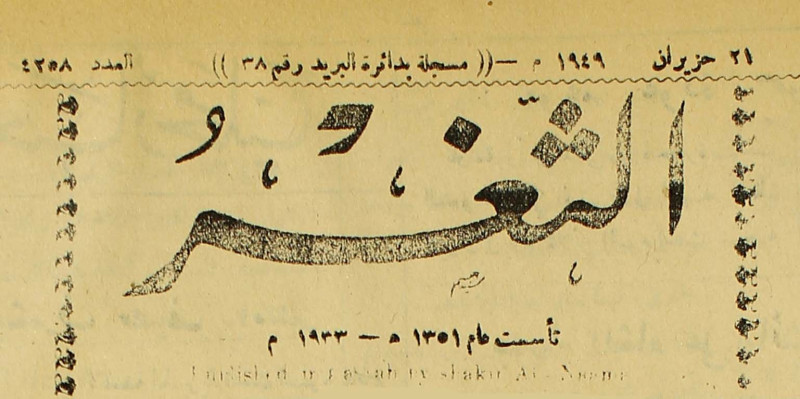 ٢١ حزيران ١٩٤٩ م —(( مسجلة بدائرة البريد رقم ٣٨ )) العدد ٤٢٥٨
الثغر
تأسست عام ١٣٥١ ه — ١٩٣٣ م
Published in by Shakir Al-